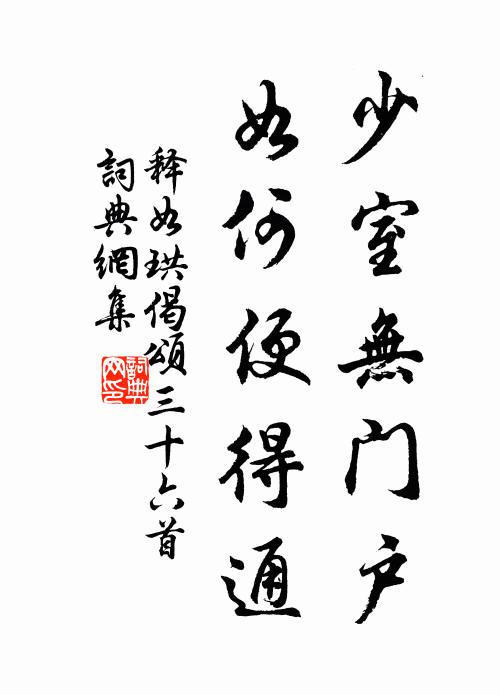 少室無門户
如何便得通
释如珙偈頌三十六首
詞典網集
詞典
网印